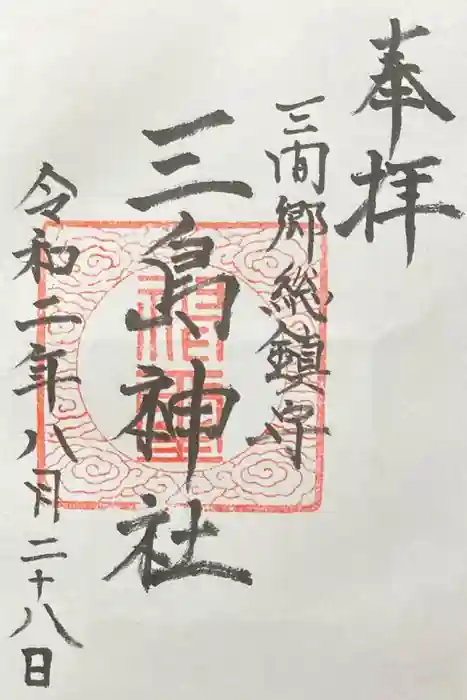 奉拝
三間郷総鎮守
三島神社
令和二年八月二十八日